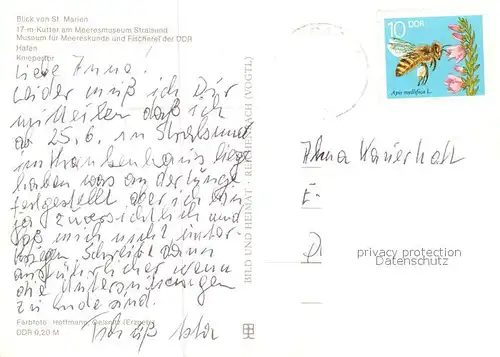 Blick von St. Marien
17-m-Kutter am Meeresmuseum Stralsund
Museum für Meereskunde und Fischerei der DDR
Hafen
Kniepertor
Liebe Anna!
Leider muß ich Dir
mitteilen daß ich
ab 25.6. in Stralsund
im Krankenhaus liege
haben was an der Lunge
festgestellt aber ich bin
ja zuversichtlich und
laß mich nicht unter-
kriegen. Schreibe dann
ausführlicher wenn
die Untersuchungen
zu Ende sind.
Farbfoto: Hoffmann, Gelenau (Erzgeb.)
DDR 0,20 M
BILD UND HEIMAT · REICHENBACH (VOGTL)
10 DDR
Apis mellifica L.
Anna
privacy protection
Datenschutz